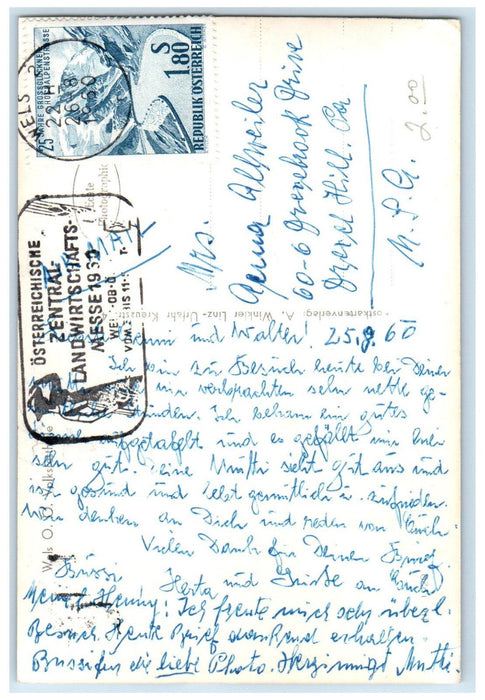 25 JAHRE GROSSGLOCKNER
HOCHALPENSTRASSE
S 1.80
REPUBLIK ÖSTERREICH
WELS 2
22-H
26.8
1960
Echte
Photographie
ÖSTERREICHISCHE
ZENTRAL-
LANDWIRTSCHAFTS-
MESSE 1960
WELS-OB.Ö.
VOM BIS 11.
2.00
Mrs.
60-6 Drive
Drexel Hill Pa
Postkartenverlag: A. Winkler Linz-Urfahr Kreuzstr.
Wels O. Ö. Volks
und Walter! 25.8.60
Ich bin zu Besuch heute bei Deiner
wir verbrachten sehr nette ge-
Stunden. Ich bekam ein gutes
und es gefällt mir hier
sehr gut. Deine Mutti sieht gut aus und
ist gesund und lebt gemütlich u. zufrieden.
Wir denken an Dich und reden von Euch.
Vielen Dank für Deinen Brief.
Bussi Herta und Grüße an Euch
Henny! Ich freute mich sehr über l.
Besuch. Heute Brief dankend erhalten.
Bussi für die liebe Photo. Herzinnigst Mutti.